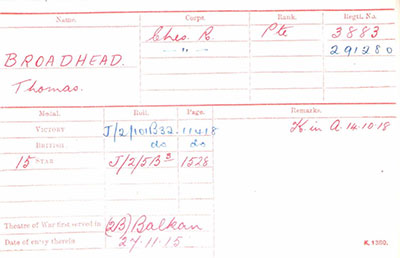 Name. Corps. Rank. Regtl. No.
BROADHEAD. Ches. R. Pte 3883
" 291280
Thomas.
Medal. Roll. Page. Remarks.
VICTORY J/2/101B32. 11418 K in A. 14.10.18
BRITISH do do
15 STAR J/2/5B3 1528
Theatre of War first served in (2B) Balkan
Date of entry therein 27.11.15
K. 1380.